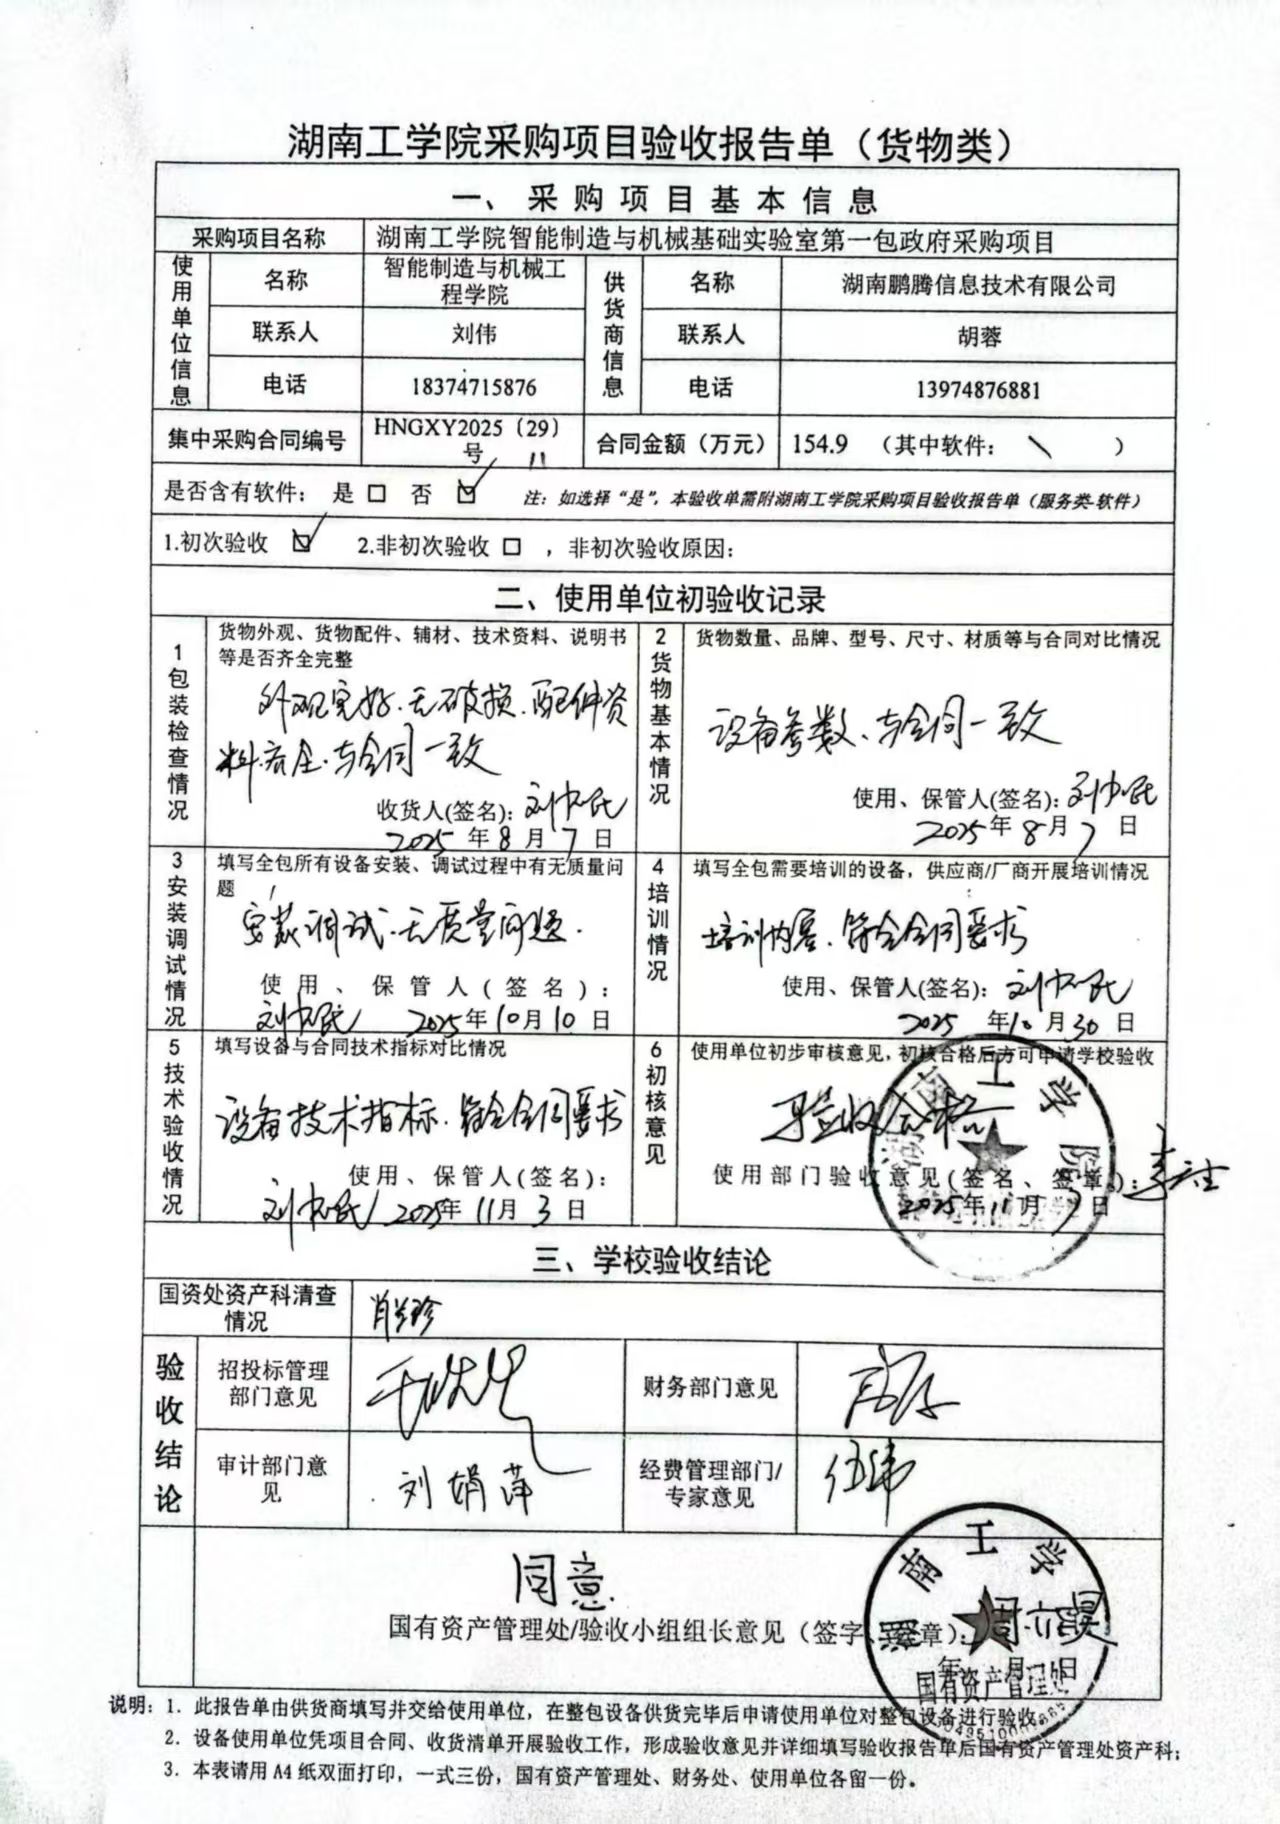 湖南工学院采购项目验收报告单（货物类）
一、采购项目基本信息
采购项目名称 湖南工学院智能制造与机械基础实验室第一包政府采购项目
使用单位信息 名称 智能制造与机械工程学院 供货商信息 名称 湖南鹏腾信息技术有限公司
联系人 刘伟 联系人 胡蓉
电话 18374715876 电话 13974876881
集中采购合同编号 HNGXY2025〔29〕号 11 合同金额（万元） 154.9 （其中软件：\ ）
是否含有软件： 是 □ 否 ☑ 注：如选择“是”，本验收单需附湖南工学院采购项目验收报告单（服务类-软件）
1.初次验收 ☑ 2.非初次验收 □ ，非初次验收原因：
二、使用单位初验收记录
1 包装检查情况
货物外观、货物配件、辅材、技术资料、说明书
等是否齐全完整
外观完好.无破损.配件资
料齐全.与合同一致
收货人(签名)：
2025年8月7日
2 货物基本情况
货物数量、品牌、型号、尺寸、材质等与合同对比情况
设备参数、与合同一致
使用、保管人(签名)：
2025年8月7日
3 安装调试情况
填写全包所有设备安装、调试过程中有无质量问
题
安装调试.无质量问题.
使用、保管人(签名)：
2025年10月10日
4 培训情况
填写全包需要培训的设备，供应商/厂商开展培训情况
培训内容、符合合同要求
使用、保管人(签名)：
2025年10月30日
5 技术验收情况
填写设备与合同技术指标对比情况
设备技术指标.符合合同要求
使用、保管人(签名)：
2025年11月3日
6 初核意见
使用单位初步审核意见，初核合格后方可申请学校验收
验收合格
使用部门验收意见(签名、签章)：
2025年11月3日
湖南工学院
三、学校验收结论
国资处资产科清查情况
验收结论
招投标管理部门意见 财务部门意见
审计部门意见 刘娟萍 经费管理部门/专家意见 伍纬
同意
国有资产管理处/验收小组组长意见（签字、签章）：
年 月 日
湖南工学院
国有资产管理处
说明：1．此报告单由供货商填写并交给使用单位，在整包设备供货完毕后申请使用单位对整包设备进行验收。
2．设备使用单位凭项目合同、收货清单开展验收工作，形成验收意见并详细填写验收报告单后国有资产管理处资产科；
3．本表请用A4纸双面打印，一式三份，国有资产管理处、财务处、使用单位各留一份。